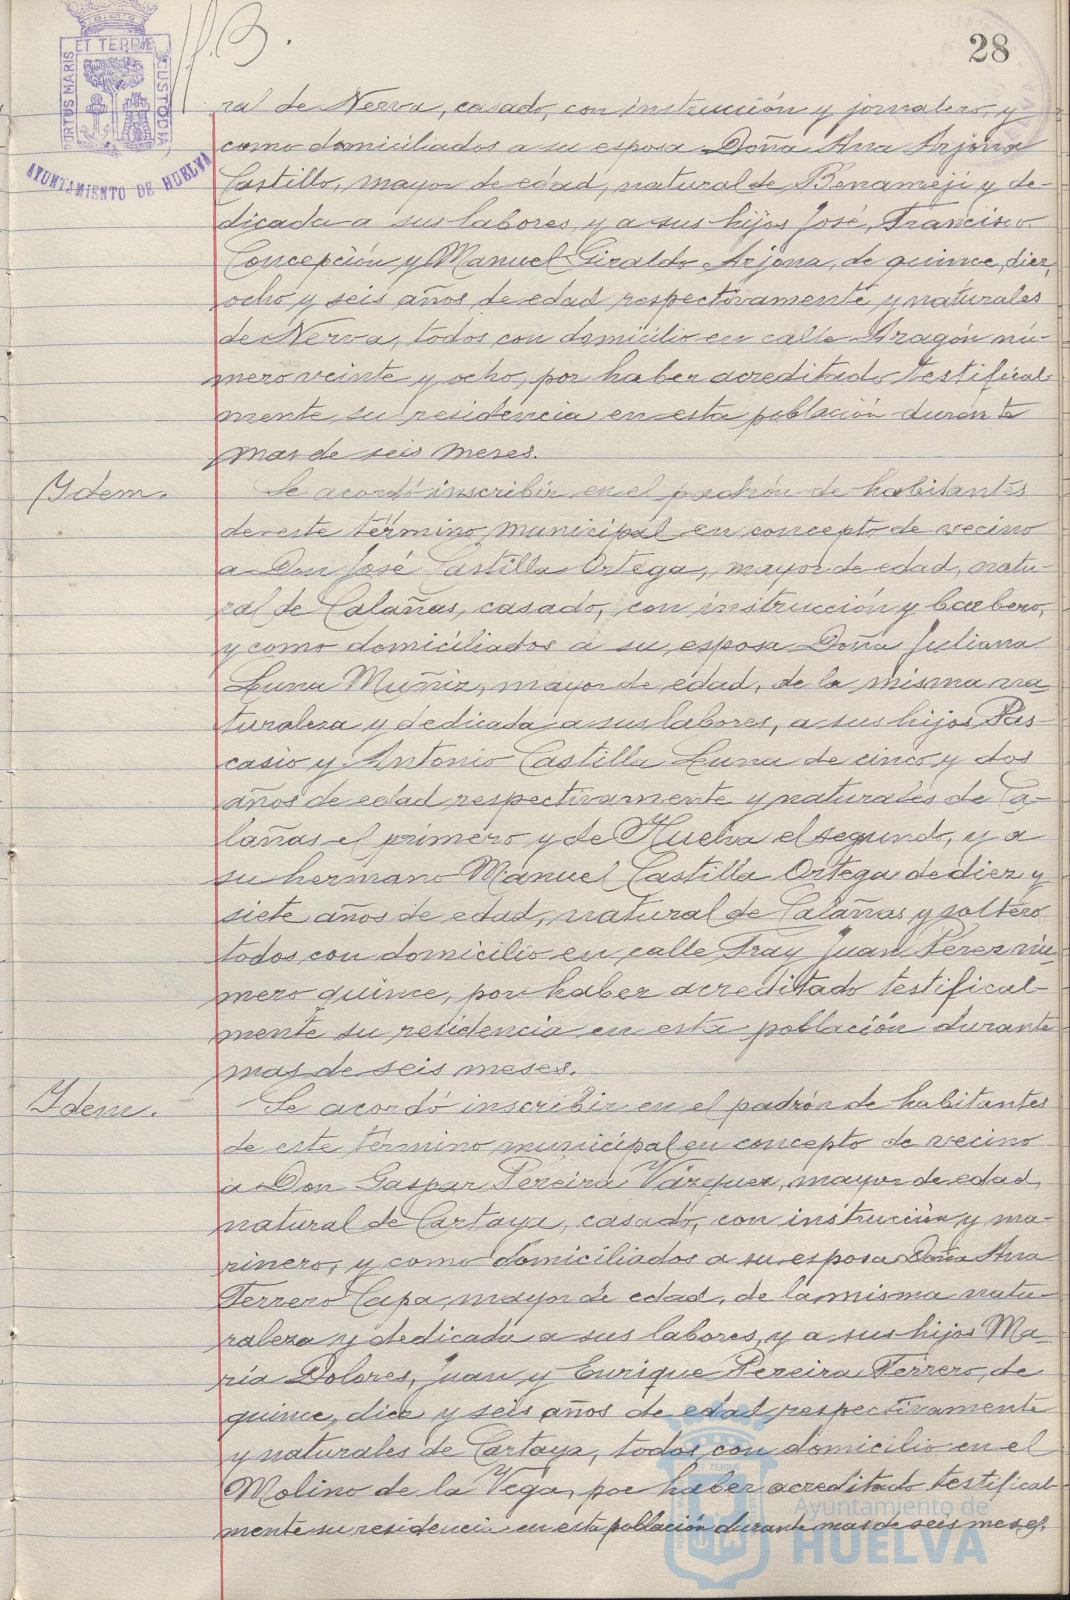 28
PORTUS MARIS ET TERRÆ CUSTODIA
AYUNTAMIENTO DE HUELVA
ral de Nerva, casado, con instrucción y jornalero, y
como domiciliados a su esposa Doña Ana Arjona
Castillo, mayor de edad, natural de Benamejí y de-
dicada a sus labores, y a sus hijos José, Francisco,
Concepción y Manuel Giraldo Arjona, de quince, diez,
ocho y seis años de edad respectivamente y naturales
de Nerva, todos con domicilio en calle Aragón nú-
mero veinte y ocho, por haber acreditado testifical-
mente su residencia en esta población durante
mas de seis meses.
Ydem.
Se acordó inscribir en el padrón de habitantes
de este término municipal en concepto de vecino
a Don José Castilla Ortega, mayor de edad, natu-
ral de Calañas, casado, con instrucción y barbero,
y como domiciliados a su esposa Doña Juliana
Luna Muñiz, mayor de edad, de la misma na-
turaleza y dedicada a sus labores, a sus hijos Pas-
casio y Antonio Castilla Luna de cinco y dos
años de edad respectivamente y naturales de Ca-
lañas el primero y de Huelva el segundo, y a
su hermano Manuel Castilla Ortega de diez y
siete años de edad, natural de Calañas y soltero
todos con domicilio en calle Fray Juan Pérez nú-
mero quince, por haber acreditado testifical-
mente su residencia en esta población durante
mas de seis meses.
Ydem.
Se acordó inscribir en el padrón de habitantes
de este término municipal en concepto de vecino
a Don Gaspar Pereira Vázquez, mayor de edad,
natural de Cartaya, casado, con instrucción y ma-
rinero, y como domiciliados a su esposa Doña Ana
Ferrero Capa, mayor de edad, de la misma natu-
raleza y dedicada a sus labores, y a sus hijos Ma-
ría Dolores, Juan y Enrique Pereira Ferrero, de
quince, diez y seis años de edad respectivamente
y naturales de Cartaya, todos con domicilio en el
Molino de la Vega, por haber acreditado testifical-
mente su residencia en esta población durante mas de seis meses.
Ayuntamiento de
HUELVA